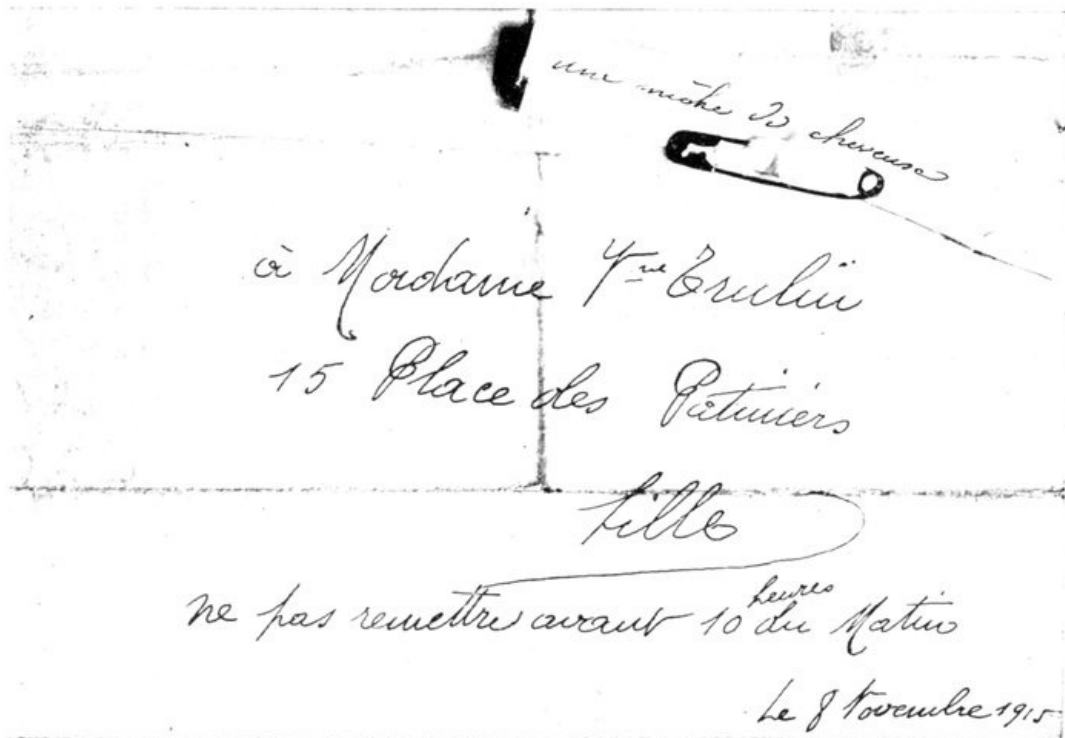 une mèche de cheveux
à Madame Vve Trulin
15 Place des Patiniers
Lille
ne pas remettre avant 10 heures du Matin
Le 8 Novembre 1915